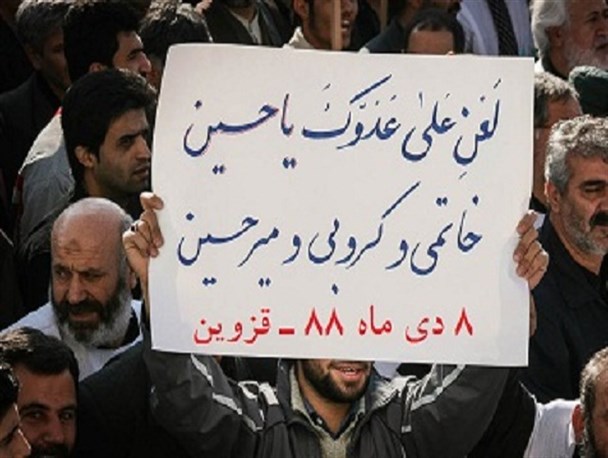 لَعَنِ عَلیٰ عَدُوّکَ یا حسین
خاتمی و کروبی و میرحسین
۸ دی ماه ۸۸ ـ قزوین